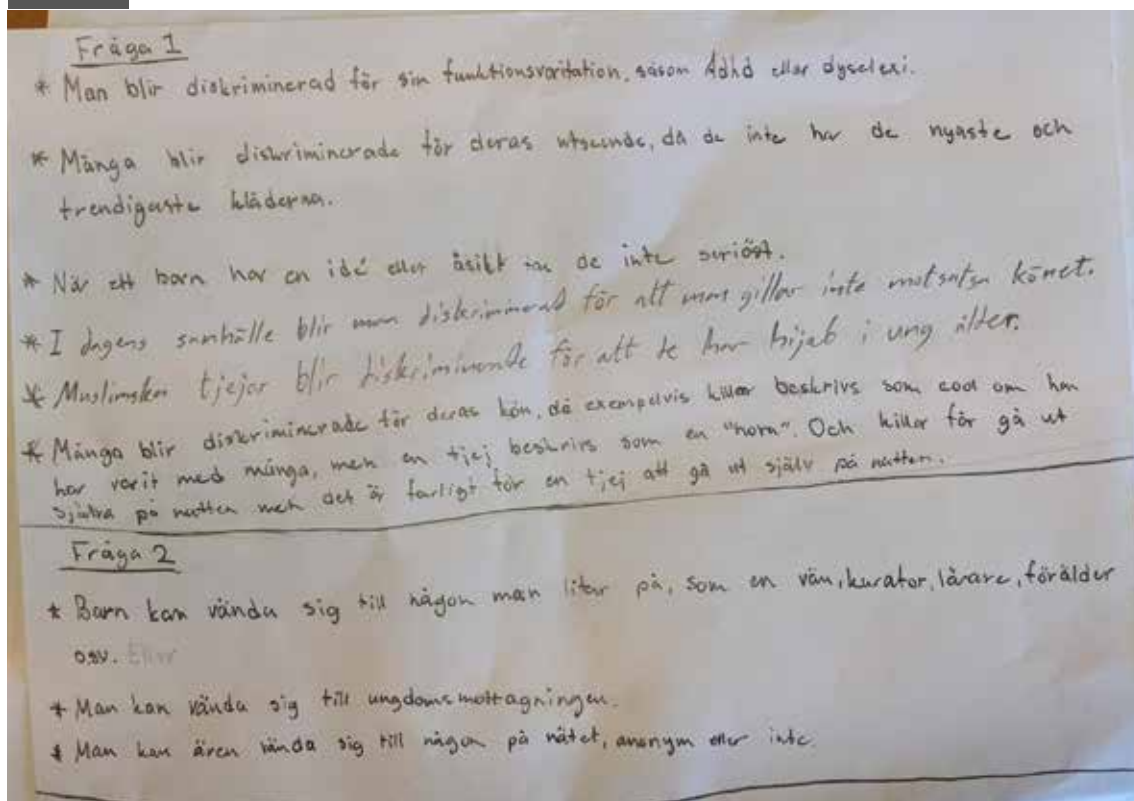 Fråga 1
* Man blir diskriminerad för sin funktionsvaritation, såsom Adhd eller dyselexi.
* Många blir diskriminerade för deras utseende, då de inte har de nyaste och
trendigaste kläderna.
* När ett barn har en idé eller åsikt tas de inte seriöst.
* I dagens samhälle blir man diskriminerad för att man gillar inte motsatsa könet.
* Muslimska tjejer blir diskriminerade för att de har hijab i ung ålder.
* Många blir diskriminerade för deras kön, då exempelvis killar beskrivs som cool om han
har varit med många, men en tjej beskrivs som en "hora". Och killar får gå ut
själva på natten men det är farligt för en tjej att gå ut själv på natten.
Fråga 2
* Barn kan vända sig till någon man litar på, som en vän, kurator, lärare, förälder
osv. Eller
* Man kan vända sig till ungdomsmottagningen.
* Man kan även vända sig till någon på nätet, anonym eller inte.